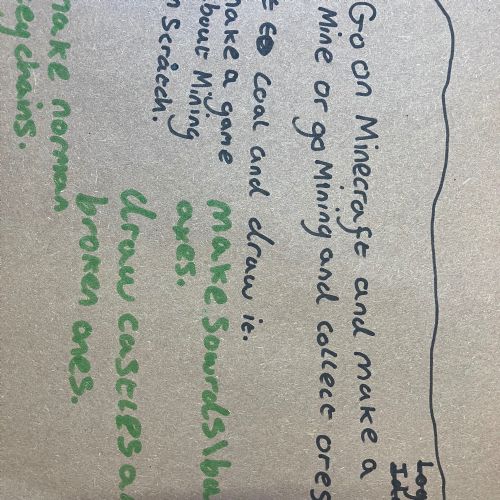 Go on Minecraft and make a
Mine or go Mining and collect ores
coal and draw it.
make a game
about Mining
Scratch.
make Sowrds\ba
axes.
draw castles a
broken ones.
make norman
keychains.